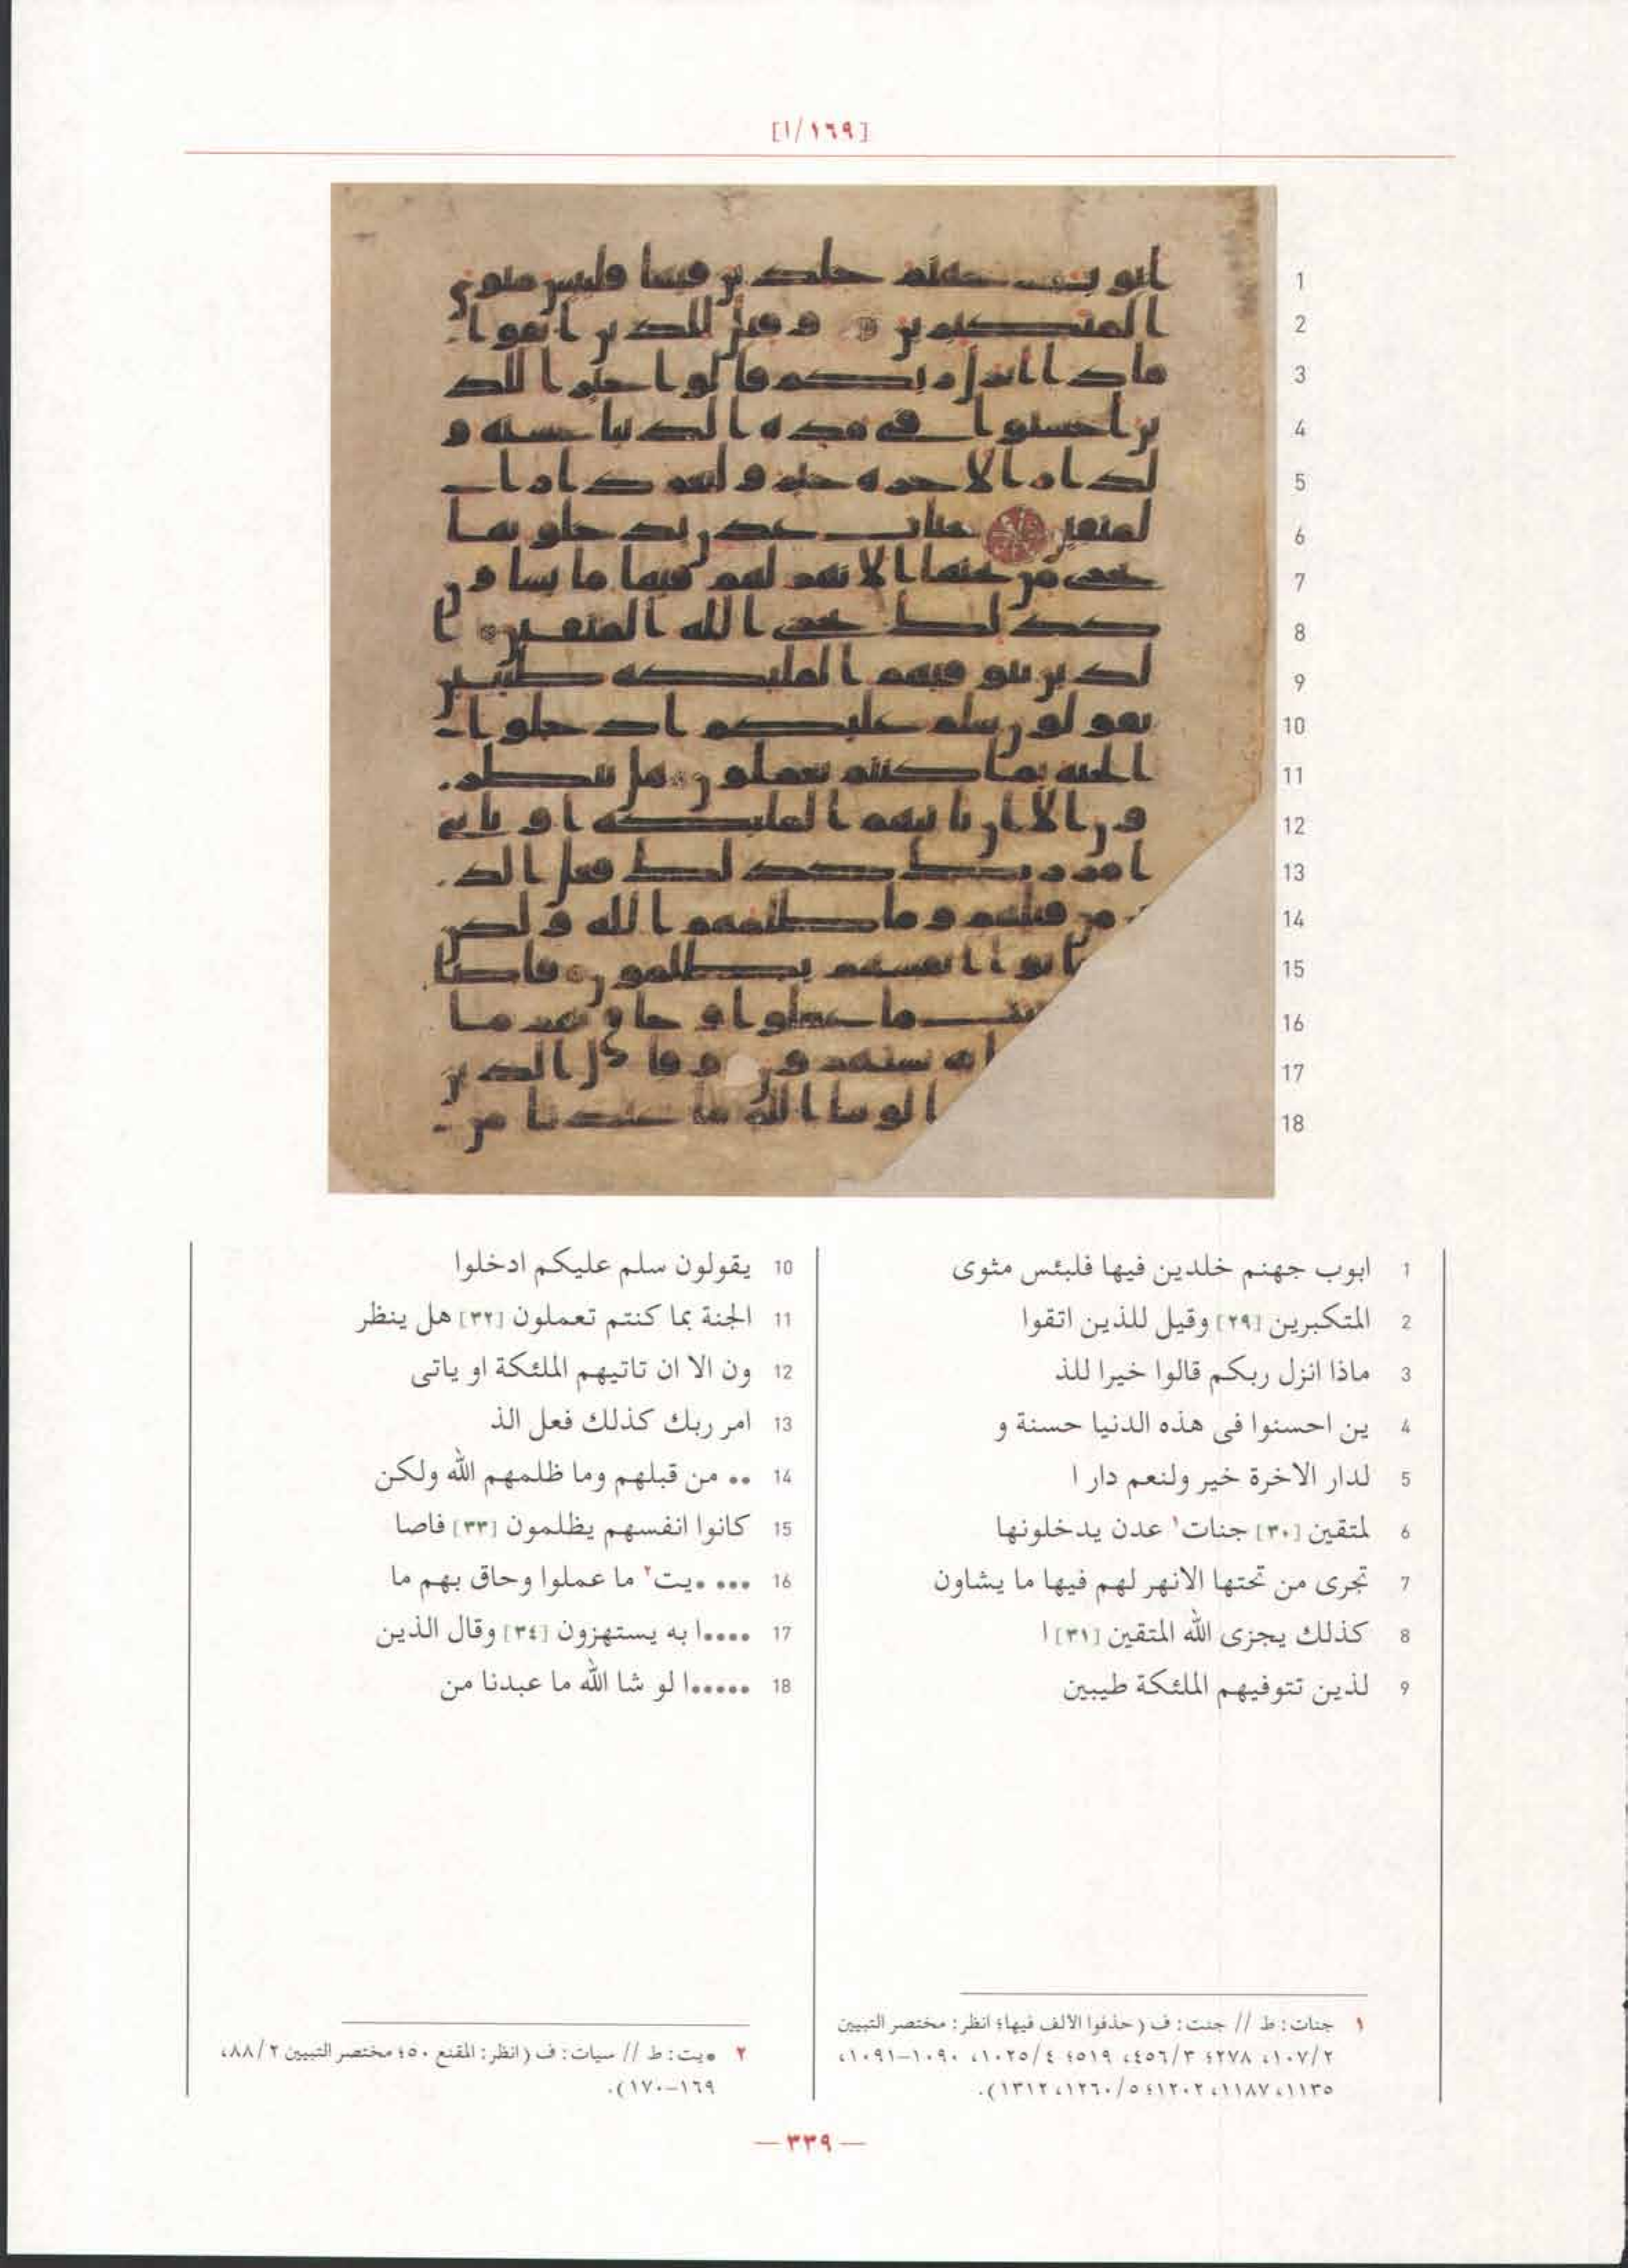 [١/١٦٩]
1 ابوب جهنم خلدين فيها فلبئس مثوى
2 المتكبرين [٢٩] وقيل للذين اتقوا
3 ماذا انزل ربكم قالوا خيرا للذ
4 ين احسنوا فى هذه الدنيا حسنة و
5 لدار الاخرة خير ولنعم دار ا
6 لمتقين [٣٠] جنات١ عدن يدخلونها
7 تجرى من تحتها الانهر لهم فيها ما يشاون
8 كذلك يجزى الله المتقين [٣١] ا
9 لذين تتوفيهم الملئكة طيبين
10 يقولون سلم عليكم ادخلوا
11 الجنة بما كنتم تعملون [٣٢] هل ينظر
12 ون الا ان تاتيهم الملئكة او ياتى
13 امر ربك كذلك فعل الذ
14 •• من قبلهم وما ظلمهم الله ولكن
15 كانوا انفسهم يظلمون [٣٣] فاصا
16 ••• •يت٢ ما عملوا وحاق بهم ما
17 ••••ا به يستهزون [٣٤] وقال الذين
18 •••••ا لو شا الله ما عبدنا من
١ جنات: ط // جنت: ف (حذفوا الالف فيها؛ انظر: مختصر التبيين
١٠٧/٢، ٢٧٨؛ ٤٥٦/٣، ٥١٩؛ ١٠٢٥/٤، ١٠٩٠–١٠٩١،
١١٣٥، ١١٨٧، ١٢٠٢؛ ١٢٦٠/٥، ١٣١٢).
٢ •يت: ط // سيات: ف (انظر: المقنع ٥٠؛ مختصر التبيين ٨٨/٢،
١٦٩–١٧٠).
— ٣٣٩ —